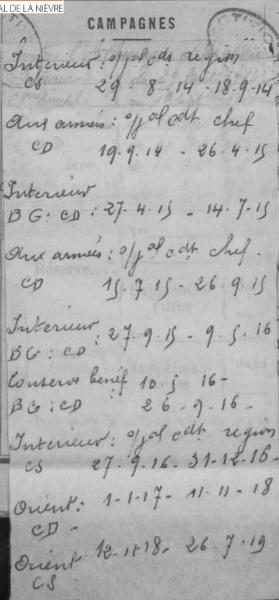 AL DE LA NIÈVRE
CAMPAGNES
Intérieur: o/ gal cdt région
CS 29-8-14-18-9-14
Aux armées: o/ gal cdt chef
CD 19.9.14 - 26-4-15
Intérieur
BG: CD: 27-4-15 - 14-7-15
Aux armées: o/ gal cdt chef.
CD 15.7.15 - 26.9.15
Intérieur: 27.9.15 - 9.5.16
BG: CD:
Conserve bénéf 10.5 16-
BG: CD 26-9.16-
Intérieur: o/ gal cdt région
CS 27.9.16. 31-12.16-
Orient: 1-1-17- 11-11-18
CD-
Orient 12-11-18- 26.7.19
CS